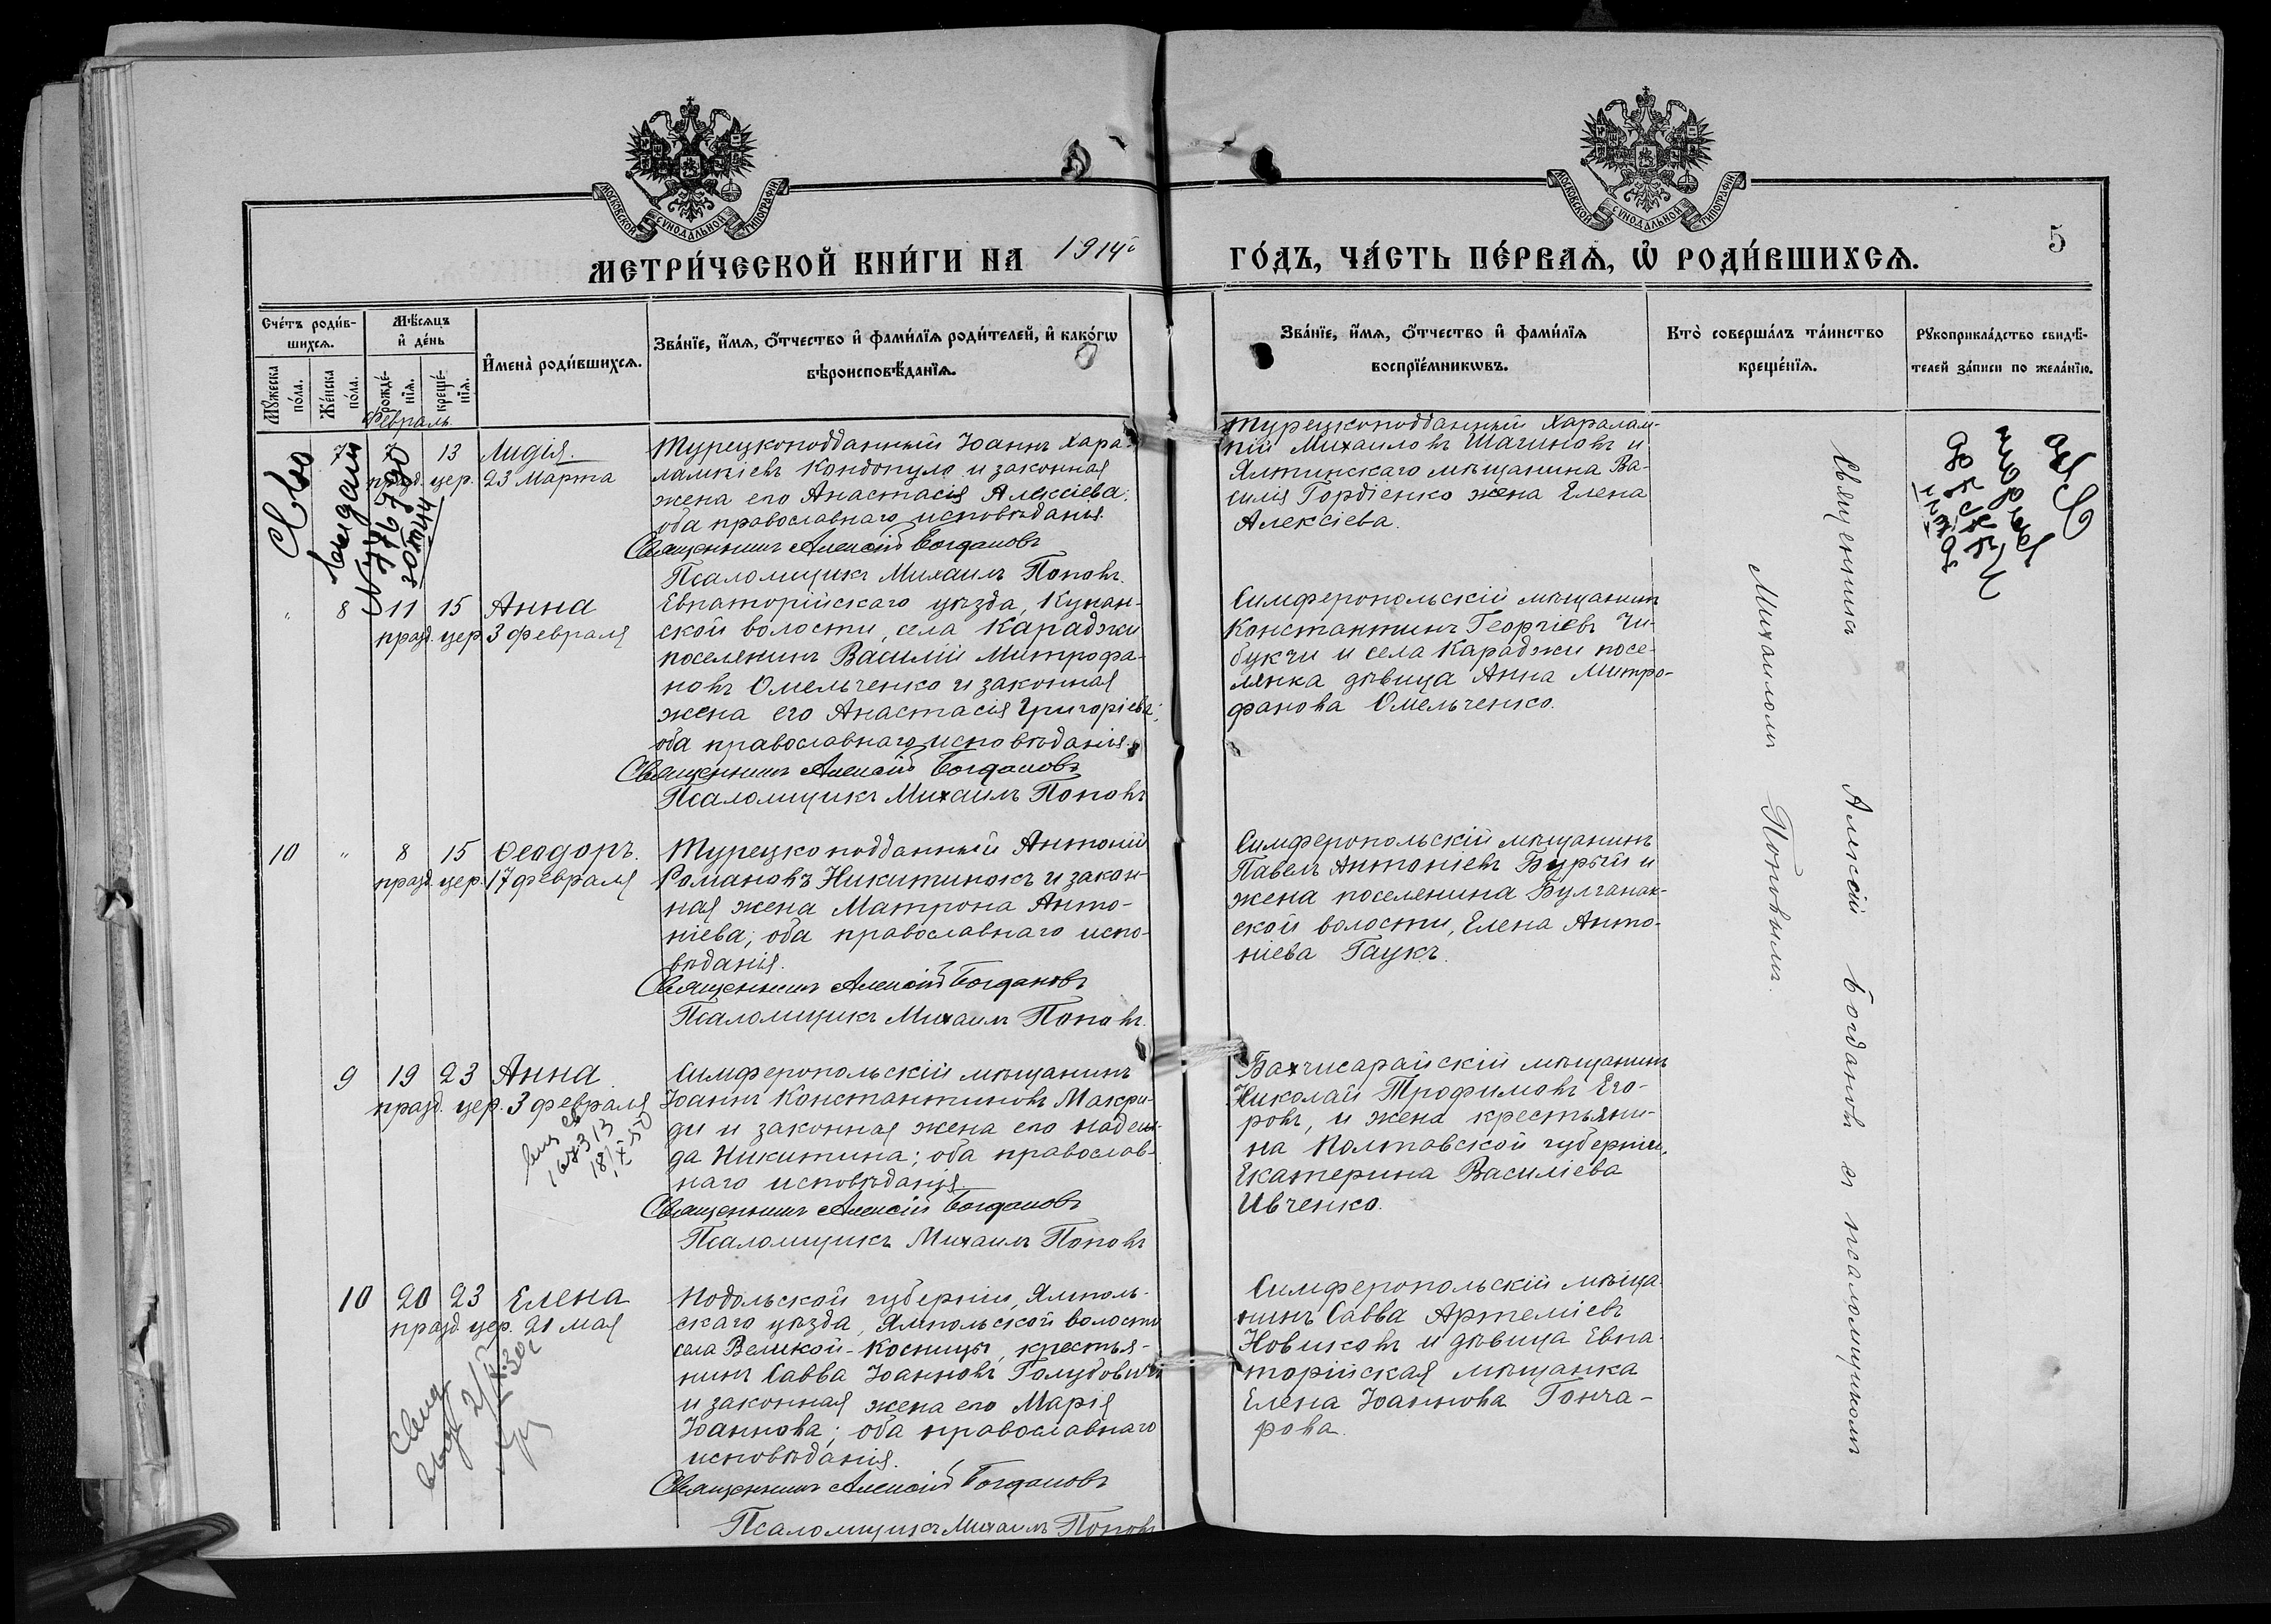 МОСКОВСКОЙ СѴНОДАЛЬНОЙ ТИПОГРАФІИ
МОСКОВСКОЙ СѴНОДАЛЬНОЙ ТИПОГРАФІИ
МЕТРИ́ЧЕСКОЙ КНИ́ГИ НА 1914й ГО́ДЪ, ЧА́СТЬ ПЕ́РВАѦ, Ѡ҆ РОДИ́ВШИХСѦ.
5
Сче́тъ роди́в-
шихсѧ.
Мꙋ́жеска по́ла.
Же́нска по́ла.
Мѣ́сѧцъ и҆ де́нь
рожде́-нїѧ.
креще́-нїѧ.
И҆мена̀ роди́вшихсѧ.
Зва́нїе, и҆́мѧ, ѻ҆́тчество и҆ фами́лїѧ роди́телей, и҆ како́гѡ
вѣроисповѣ́данїѧ.
Зва́нїе, и҆́мѧ, ѻ҆́тчество и҆ фами́лїѧ
воспрїе́мникѡвъ.
Кто̀ соверша́лъ та́инство
креще́нїѧ.
Рꙋкоприкла́дство свидѣ́-
телей за́писи по жела́нїю.
Февраль
7 7 13 Лидія.
празд. цер. 23 Марта
Турецкоподданный Іоаннъ Хара-
лампіевъ Кондопуло и законная
жена его Анастасія Алексіева:
оба православнаго исповѣданія.
Священникъ Алексій Богдановъ
Псаломщикъ Михаилъ Поповъ.
Турецкоподданный Харалам-
пій Михаиловъ Шагиновъ и
Ялтинскаго мѣщанина Ва-
силія Гордіенко жена Елена
Алексіева.
" 8 11 15 Анна
празд. цер. 3 февраля
Евпаторійскаго уѣзда, Кунан-
ской волости, села Караджи
поселянинъ Василій Митрофа-
новъ Омельченко и законная
жена его Анастасія Григоріева;
оба православнаго исповѣданія.
Священникъ Алексій Богдановъ
Псаломщикъ Михаилъ Поповъ
Симферопольскій мѣщанинъ
Константинъ Георгіевъ Чи-
букчи и села Караджи посе-
лянка дѣвица Анна Митро-
фанова Омельченко.
10 " 8 15 Ѳеодоръ.
празд. цер. 17 февраля
Турецкоподданный Антоній
Романовъ Никитинокъ и закон-
ная жена Матрона Анто-
ніева; оба православнаго испо-
вѣданія.
Священникъ Алексій Богдановъ
Псаломщикъ Михаилъ Поповъ.
Симферопольскій мѣщанинъ
Павелъ Антоніевъ Бурый и
жена поселянина Булганак-
ской волости, Елена Анто-
ніева Гаукъ.
9 19 23 Анна.
празд. цер. 3 февраля
168313
Симферопольскій мѣщанинъ
Іоаннъ Константиновъ Макри-
ди и законная жена его Надеж-
да Никитина; оба православ-
наго исповѣданія.
Священникъ Алексій Богдановъ
Псаломщикъ Михаилъ Поповъ
Бахчисарайскій мѣщанинъ
Николай Трофимовъ Его-
ровъ, и жена крестьяни-
на Полтавской губерніи,
Екатерина Василіева
Ивченко.
10 20 23 Елена
празд. цер. 21 мая
Подольской губерніи, Ямполь-
скаго уѣзда, Ямпольской волости
села Великой-Косницы, крестья-
нинъ Савва Іоанновъ Голудовичъ
и законная жена его Марія
Іоаннова; оба православнаго
исповѣданія.
Священникъ Алексій Богдановъ
Псаломщикъ Михаилъ Поповъ
Симферопольскій мѣща-
нинъ Савва Артеміевъ
Новиковъ и дѣвица Евпа-
торійская мѣщанка
Елена Іоаннова Гонча-
рова.
Священникъ Алексій Богдановъ и псаломщикомъ
Михаиломъ Поповымъ.